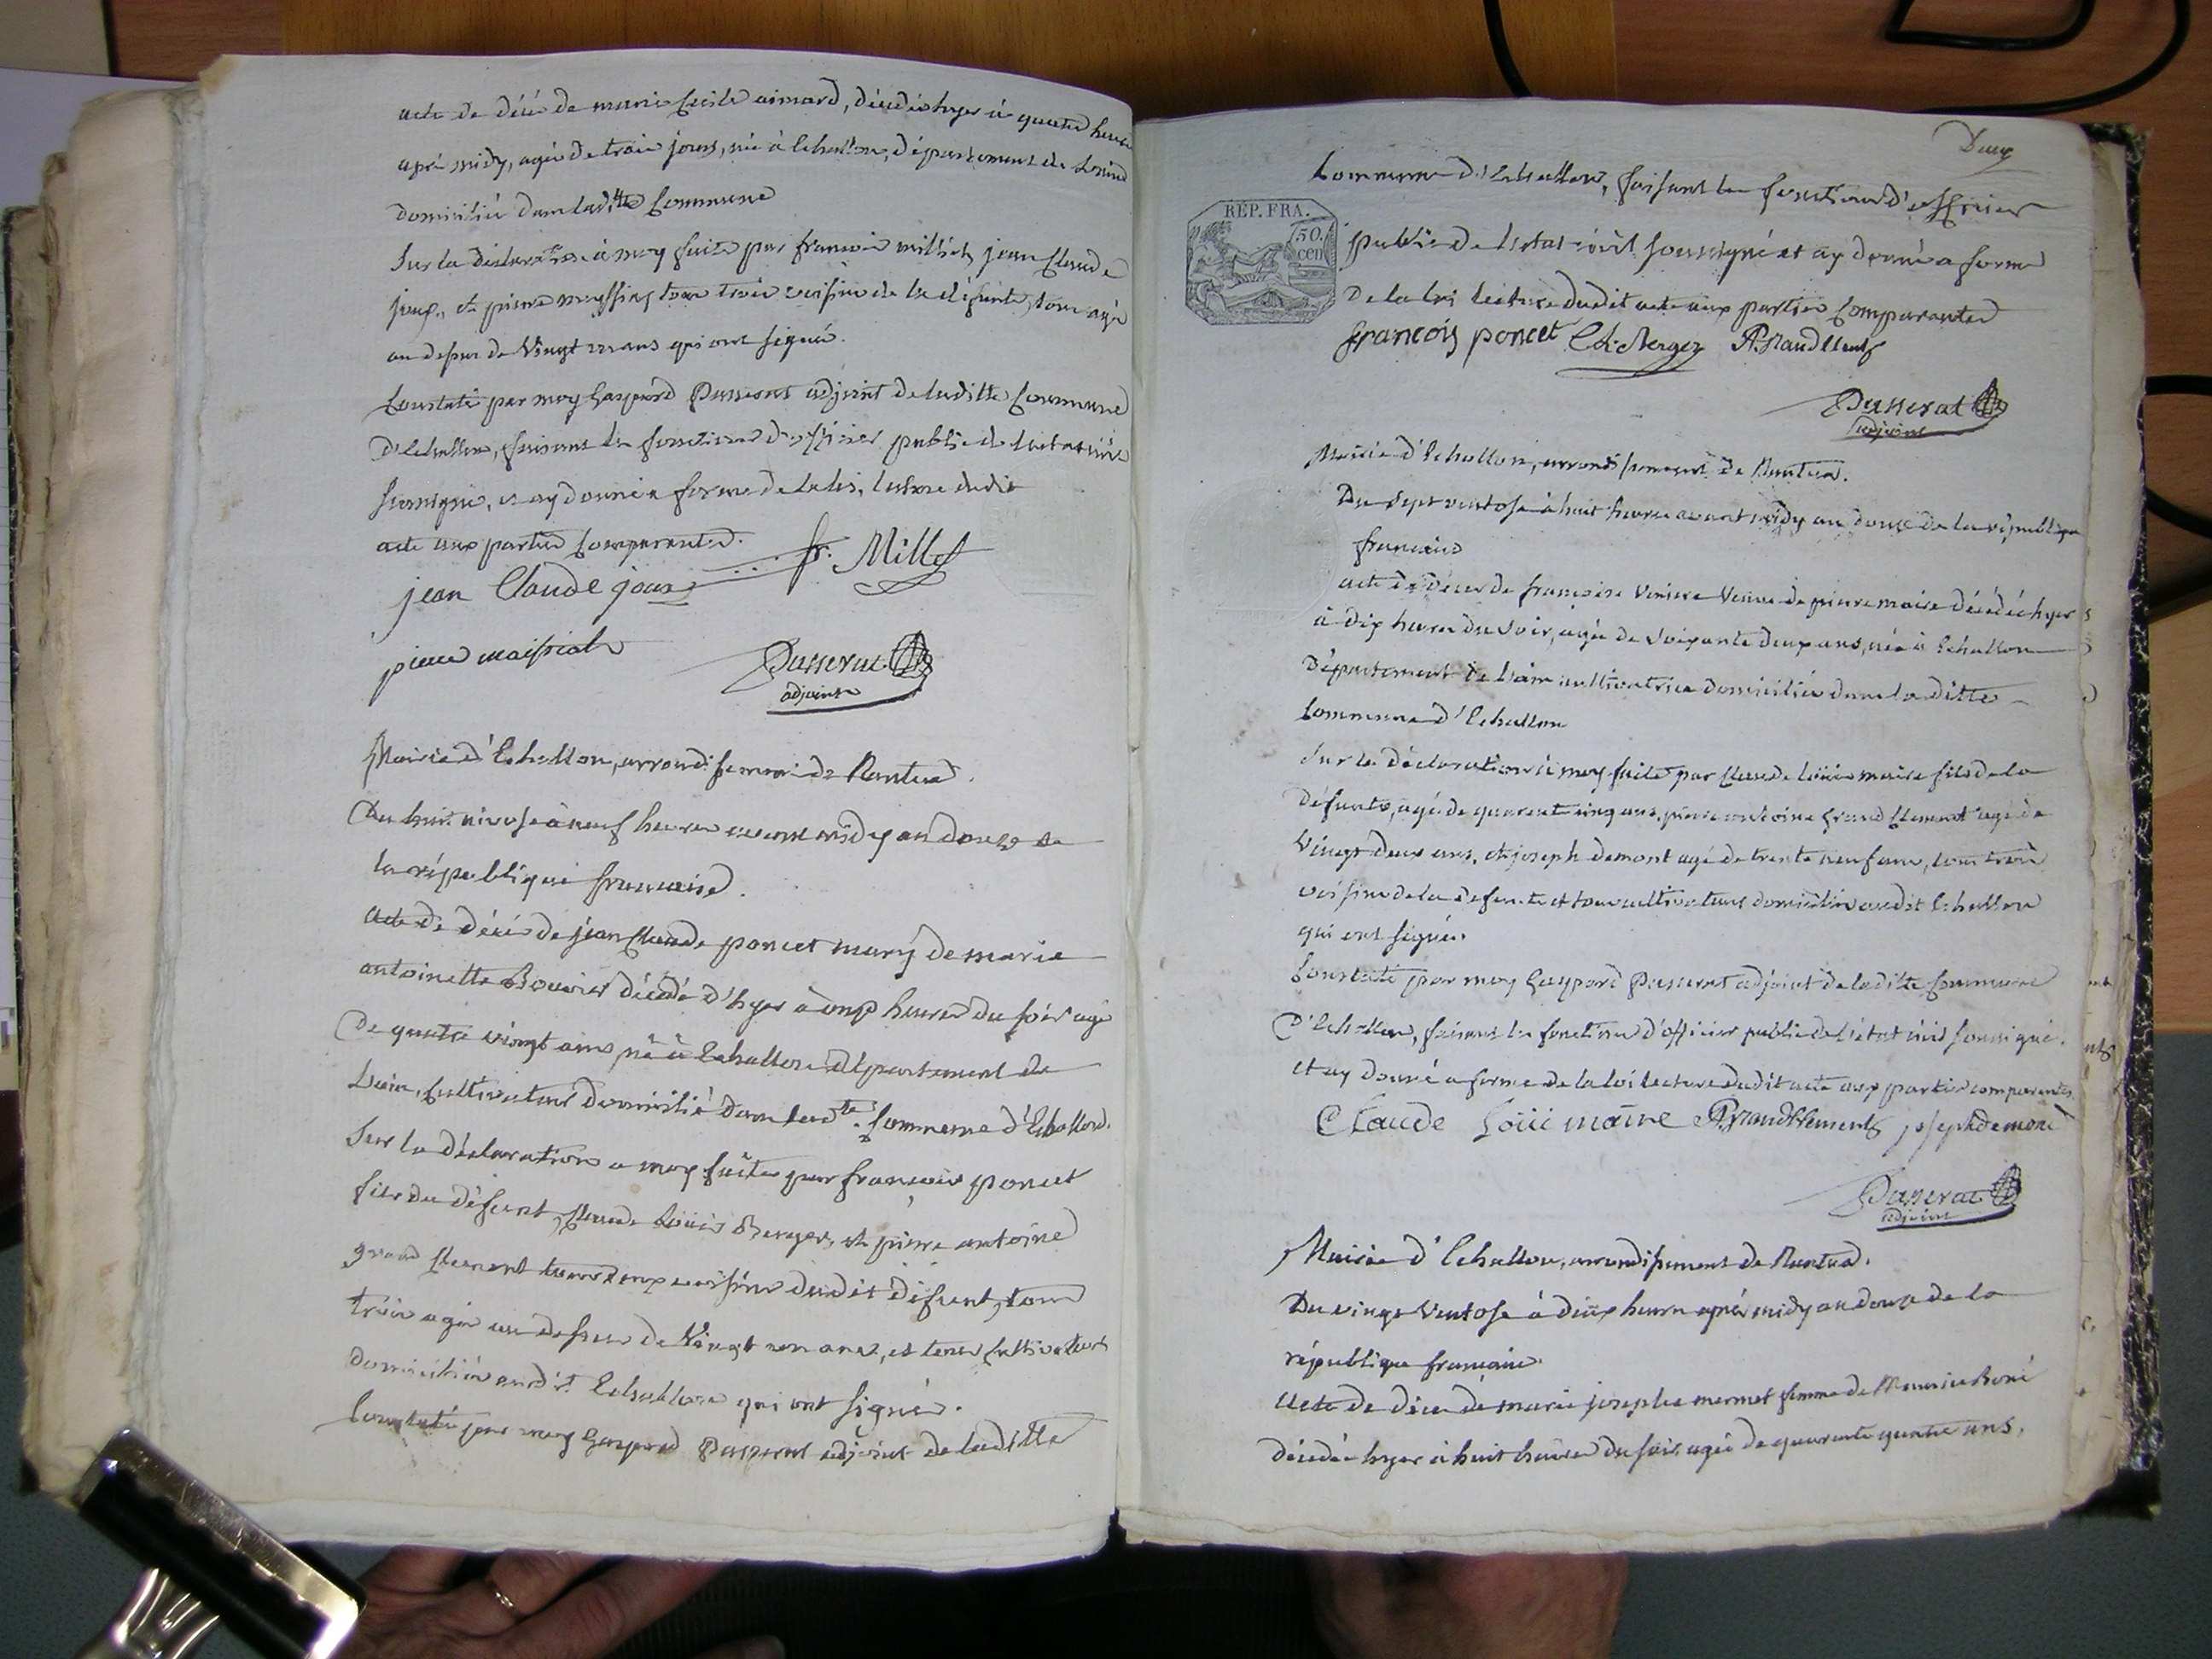 acte de décé de marie Cecile aimard, décédée hyer à quatre heures
apré midy, agée de trois jours, née à Echallon, département de Lain
domiciliée dans laditte Commune
Sur la déclaration à moy faite par francois milliet, jean Claude
joux, et pierre tous trois voisins de la défunte, tous agé
au dessus de vingt un ans qui ont signé.
Constaté par moy Gaspard Passerat adjoint de laditte Commune
D'Echallon, faisant les fonctions d'officier public de l'état civil
soussigné, et ay donné a forme de la loi, lecture dudit
acte aux parties Comparantes.
fr. Millet
jean Claude joux
pierre maissiat
Passerat
adjoint
Mairie d'Echallon, arrondissement de Nantua.
Du huit nivose à neuf heures avant midy an douze de
la république française.
acte de décés de jean Claude poncet mary de marie
antoinette Bouvier décédé d'hyer à onze heures du soir agé
De quatre vingt ans, né à Echallon département de
Lain, Cultivateur domicilié dans ladte. Commune d'Echallon.
Sur la déclaration a moy faite par françois poncet
fils du défunt, Claude Louis Berger, et pierre antoine
grand Clement tous deux voisins dudit défunt, tous
trois agés au dessus de Vingt un ans, et tous Cultivateurs
domiciliés audit Echallon qui ont signé.
Constaté par moy Gaspard Passerat adjoint de laditte
Deux
Commune d'Echallon, faisant les fonctions d'officier
REP. FRA.
50.
cen
public de l'état civil soussigné et ay donné a forme
De la loi lecture dudit acte aux parties Comparantes
françois poncet Cl. Berger PA. grand Clement
Passerat
adjoint
Mairie d'Echallon, arrondissement de Nantua.
Du sept ventose à huit heures avant midy an douze de la république
française
acte de décès de françoise veuve de pierre maire décédée hyer
à dix heures du soir, agée de soixante deux ans, née à Echallon
Département de Lain cultivatrice domiciliée dans la ditte
Commune d'Echallon
Sur la déclaration à moy faite par Claude Loüis maire fils de la
défunte, agé de quarante cinq ans, pierre antoine grand Clement agé de
Vingt deux ans, et joseph demont agé de trente neuf ans, tous trois
voisins de la defunte et tous cultivateurs domiciliés audit Echallon
qui ont signé.
Constaté par moy Gaspard Passerat adjoint de laditte Commune
D'Echallon, faisant les fonctions d'officier public de l'état civil soussigné.
et ay donné a forme de la loi lecture dudit acte aux parties comparantes
Claude Loüi maire PA. grand Clement joseph demont
Passerat
adjoint
Mairie d'Echallon, arrondissement de Nantua.
Du vingt Ventose à deux heures aprés midy an douze de la
république française.
Acte de décés de marie josephe mermet femme de Maurice
décédée hyer à huit heures du soir, agée de quarante quatre ans,